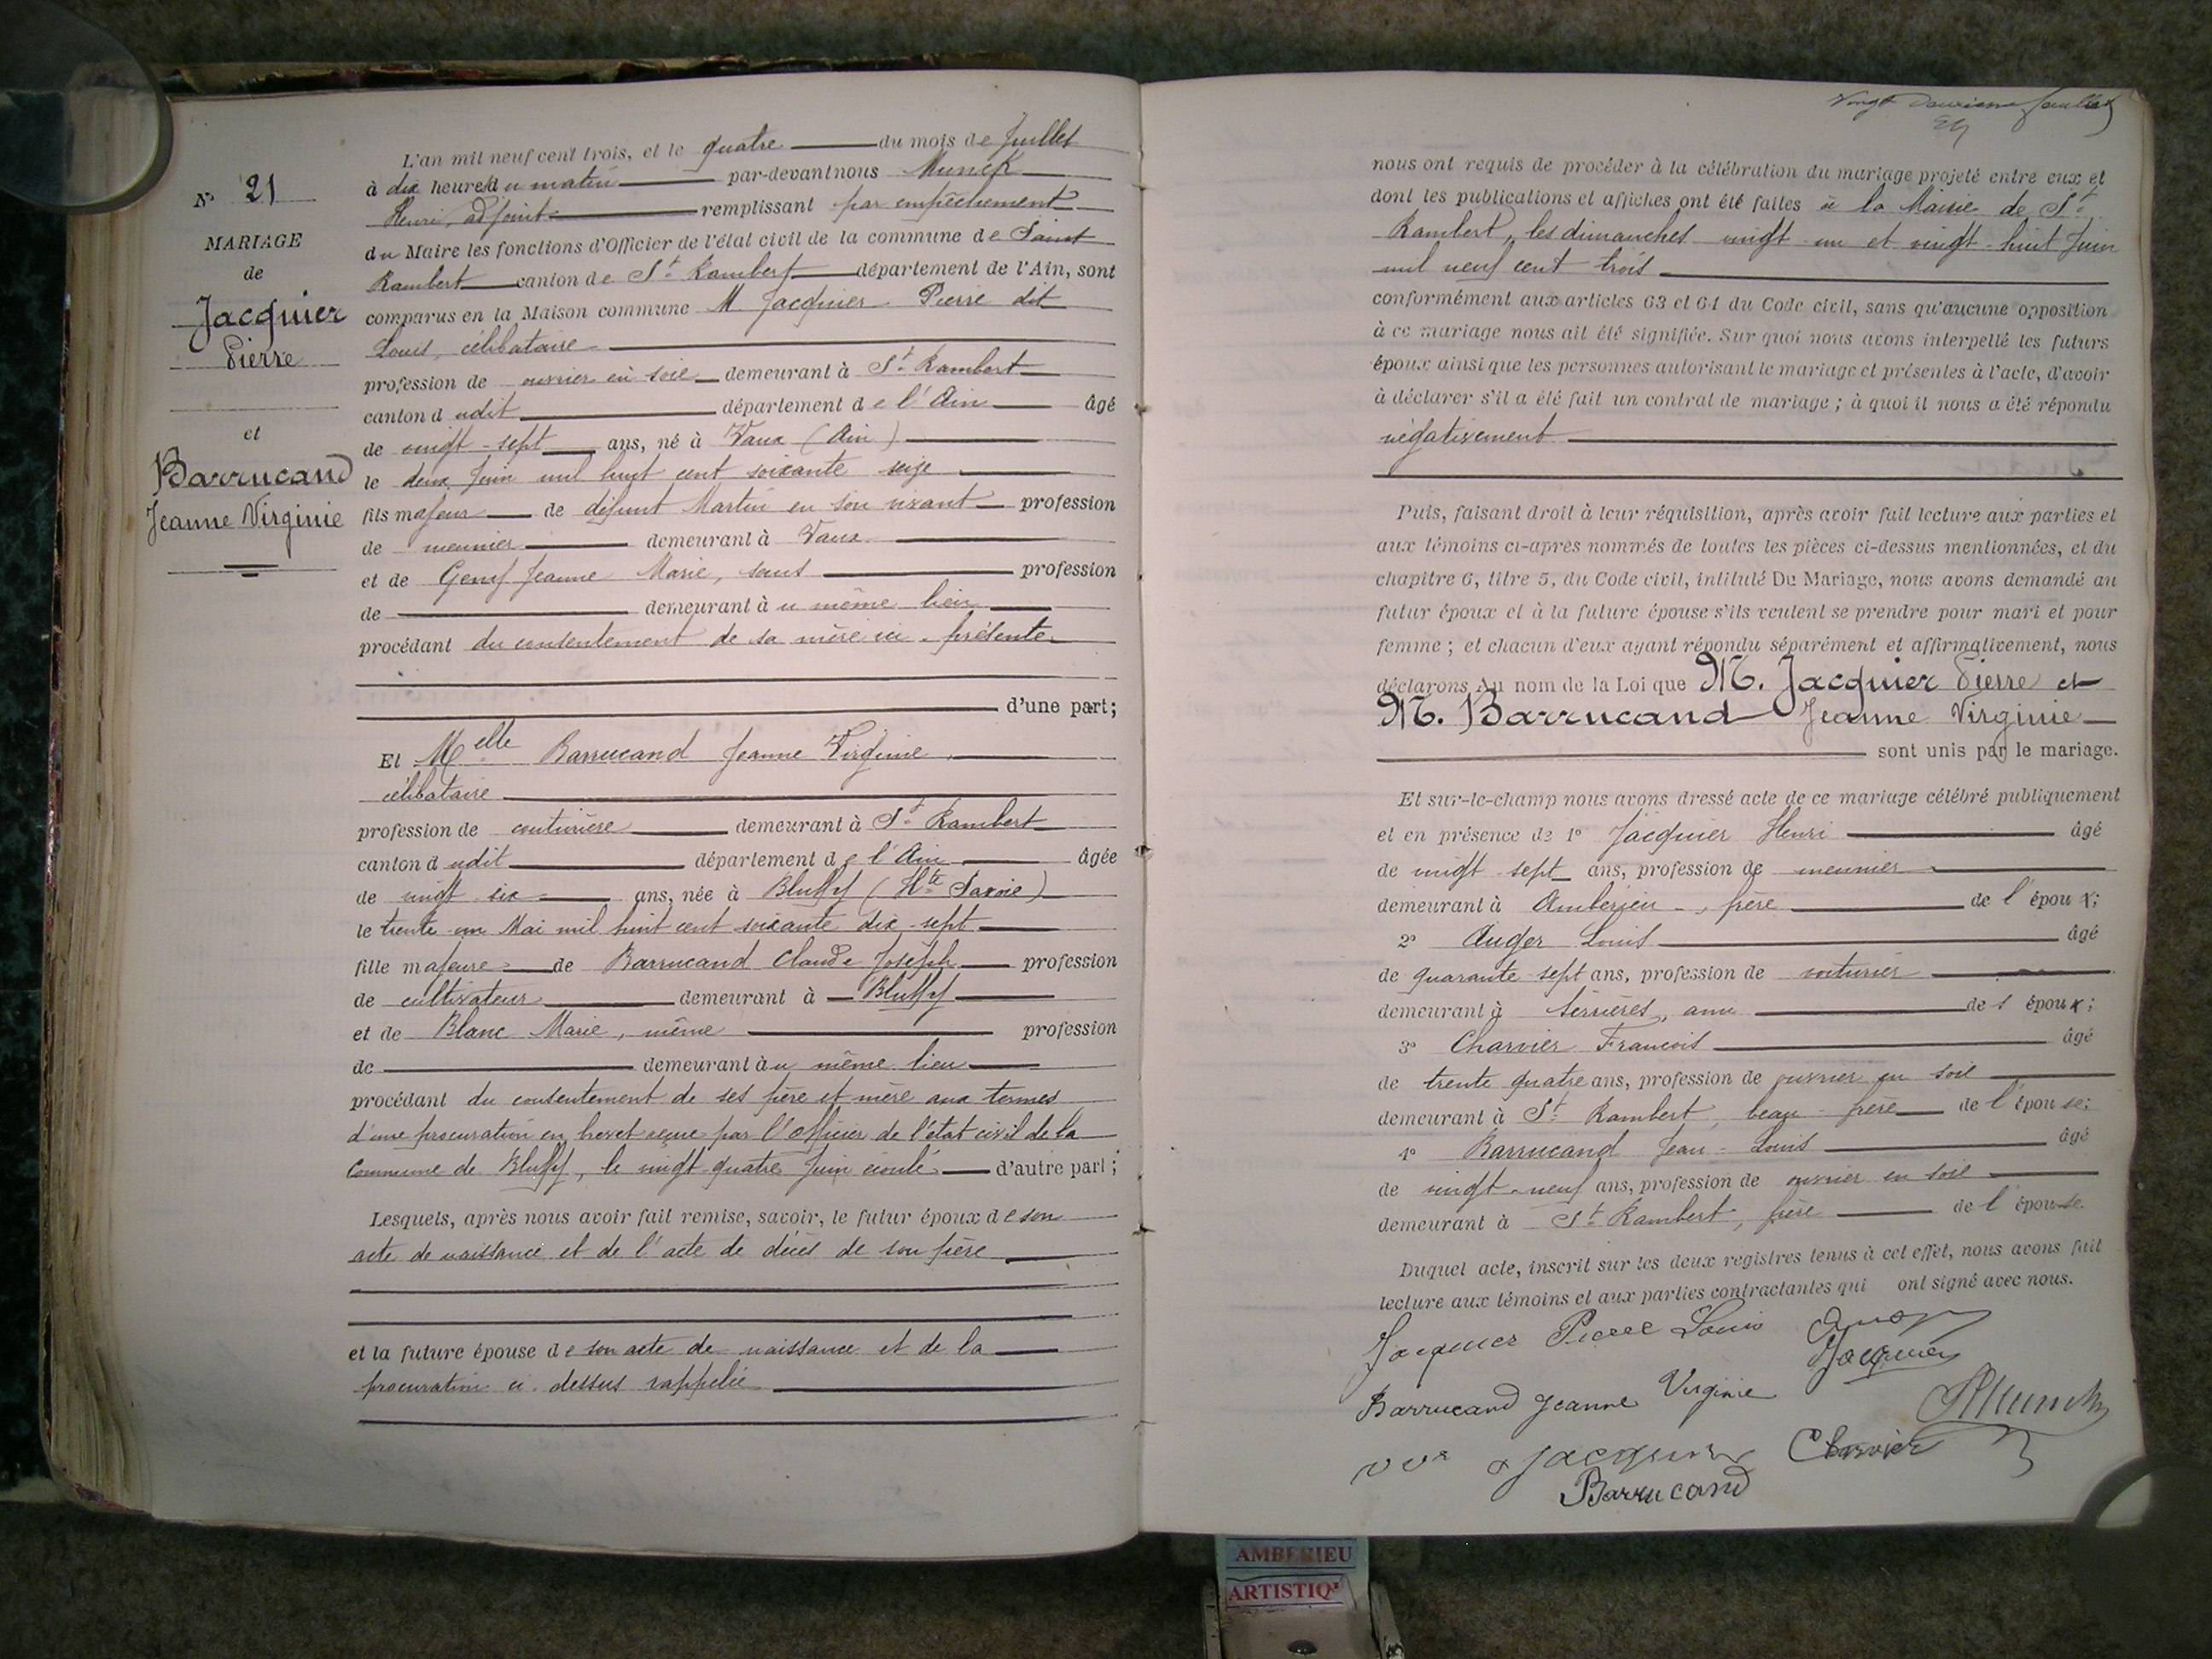 N° 21
MARIAGE
de
Jacquier
Pierre
et
Barrucand
Jeanne Virginie
L'an mil neuf cent trois, et le quatre du mois de Juillet
à dix heures du matin par-devant nous Munck
Henri, adjoint remplissant par empêchement
du Maire les fonctions d'Officier de l'état civil de la commune de Saint
Rambert canton de St Rambert département de l'Ain, sont
comparus en la Maison commune M Jacquier Pierre dit
Louis, célibataire
profession de ouvrier en soie demeurant à St Rambert
canton dudit département de l'Ain âgé
de vingt-sept ans, né à Vaux (Ain)
le deux Juin mil huit cent soixante seize
fils majeur de défunt Martin en son vivant profession
de meunier demeurant à Vaux
et de Jeanne Marie, sans profession
de demeurant à u même lieu
procédant du consentement de sa mère ici présente
d'une part;
Et Melle Barrucand Jeanne Virginie,
célibataire
profession de couturière demeurant à St Rambert
canton dudit département de l'Ain âgée
de vingt-six ans, née à Bluffy (Hte Savoie)
le trente-un Mai mil huit cent soixante dix-sept
fille majeure de Barrucand Claude Joseph profession
de cultivateur demeurant à Bluffy
et de Blanc Marie, même profession
de demeurant à u même lieu
procédant du consentement de ses père et mère aux termes
d'une procuration en brevet reçue par l'Officier de l'état civil de la
Commune de Bluffy, le vingt-quatre Juin écoulé d'autre part;
Lesquels, après nous avoir fait remise, savoir, le futur époux de son
acte de naissance et de l'acte de décès de son père
et la future épouse de son acte de naissance et de la
procuration ci-dessus rappelée
Vingt deuxième feuillet
nous ont requis de procéder à la célébration du mariage projeté entre eux et
dont les publications et affiches ont été faites à la Mairie de St
Rambert, les dimanches vingt-un et vingt-huit Juin
mil neuf cent trois
conformément aux articles 63 et 64 du Code civil, sans qu'aucune opposition
à ce mariage nous ait été signifiée. Sur quoi nous avons interpellé les futurs
époux ainsi que les personnes autorisant le mariage et présentes à l'acte, d'avoir
à déclarer s'il a été fait un contrat de mariage; à quoi il nous a été répondu
négativement
Puis, faisant droit à leur réquisition, après avoir fait lecture aux parties et
aux témoins ci-après nommés de toutes les pièces ci-dessus mentionnées, et du
chapitre 6, titre 5, du Code civil, intitulé Du Mariage, nous avons demandé au
futur époux et à la future épouse s'ils veulent se prendre pour mari et pour
femme; et chacun d'eux ayant répondu séparément et affirmativement, nous
déclarons Au nom de la Loi que M. Jacquier Pierre et
M. Barrucand Jeanne Virginie
sont unis par le mariage.
Et sur-le-champ nous avons dressé acte de ce mariage célébré publiquement
et en présence de 1° Jacquier Henri âgé
de vingt-sept ans, profession de meunier
demeurant à Ambérieu, frère de l'époux;
2° Auger Louis âgé
de quarante-sept ans, profession de voiturier
demeurant à Serrières, ami de l'époux;
3° Charvier Francois âgé
de trente quatre ans, profession de ouvrier en soie
demeurant à St Rambert, beau-frère de l'épouse;
4° Barrucand Jean-Louis âgé
de vingt-neuf ans, profession de ouvrier en soie
demeurant à St Rambert, frère de l'épouse.
Duquel acte, inscrit sur les deux registres tenus à cet effet, nous avons fait
lecture aux témoins et aux parties contractantes qui ont signé avec nous.
Jacquier Pierre Louis
Jacquier
Barrucand Jeanne Virginie
HMunck
vve Jacquier Charvier
Barrucand
AMBERIEU
ARTISTIQ